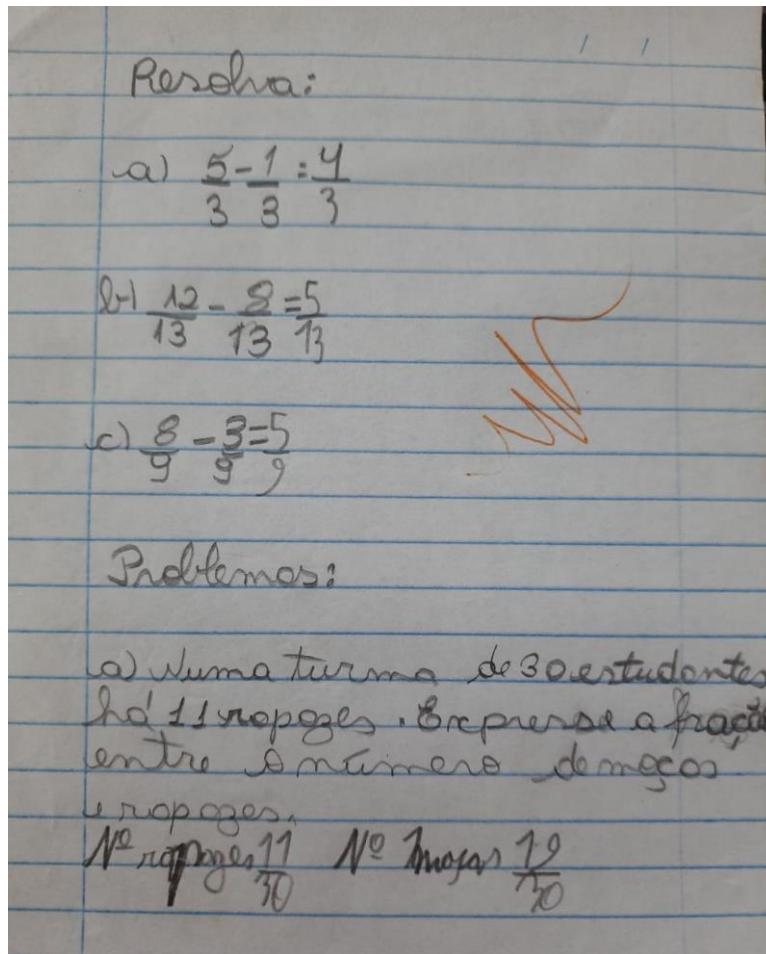 Resolva:
a) 5/3 - 1/3 = 4/3
b) 12/13 - 8/13 = 5/13
c) 8/9 - 3/9 = 5/9
Problemas:
a) Numa turma de 30 estudantes
há 11 rapazes. Expresse a fração
entre o número de moças
e rapazes.
Nº rapazes 11/30 Nº moças 19/30